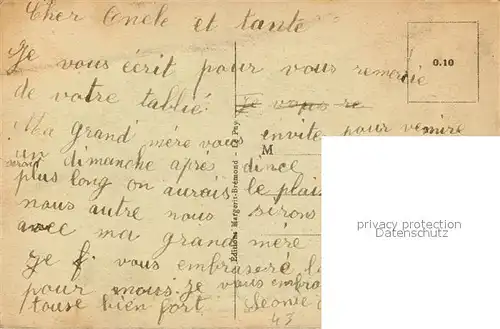 Cher Oncle et tante
Je vous écrit pour vous remercie
de votre tablié. Je vous re
Ma grand mère vous envite pour venire
un dimanche aprés dince
plus long on aurais le plais
nous autre nous sirons
avec ma grand mère
je f. vous embrasseré l
pour mous. je vous embra
touse bien fort. Leonie
43
0.10
M
Editions Margerit-Brémond - Le Puy
privacy protection
Datenschutz